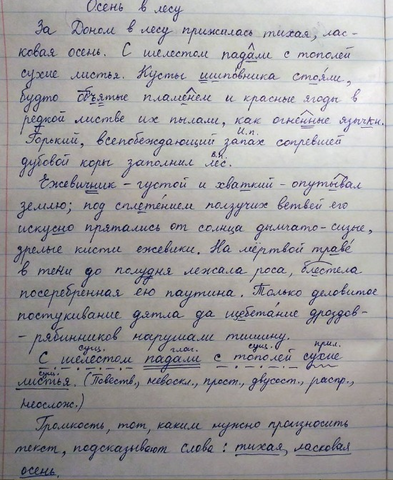 Осень в лесу
За Доном в лесу прижилась тихая, лас-
ковая осень. С шелестом падали с тополей
сухие листья. Кусты шиповника стояли,
будто объятые пламенем и красные ягоды в
редкой листве их пылали, как огненные язычки.
И.п.
Горький, всепобеждающий запах сопревшей
В.п.
дубовой коры заполнил лес.
Ежевичник - густой и хваткий - опутывал
землю; под сплетением ползучих ветвей его
искусно прятались от солнца дымчато-сизые,
зрелые кисти ежевики. На мёртвой траве
в тени до полудня лежала роса, блестела
посеребренная ею паутина. Только деловитое
постукивание дятла да щебетание дроздов-
- рябинников нарушали тишину.
сущ. глаг. сущ. прил.
С шелестом падали с тополей сухие
сущ.
листья. (Повеств., невоскл., прост., двусост., распр.,
неослож.)
Громкость, тот, каким нужно произносить
текст, подсказывают слова: тихая, ласковая
осень.